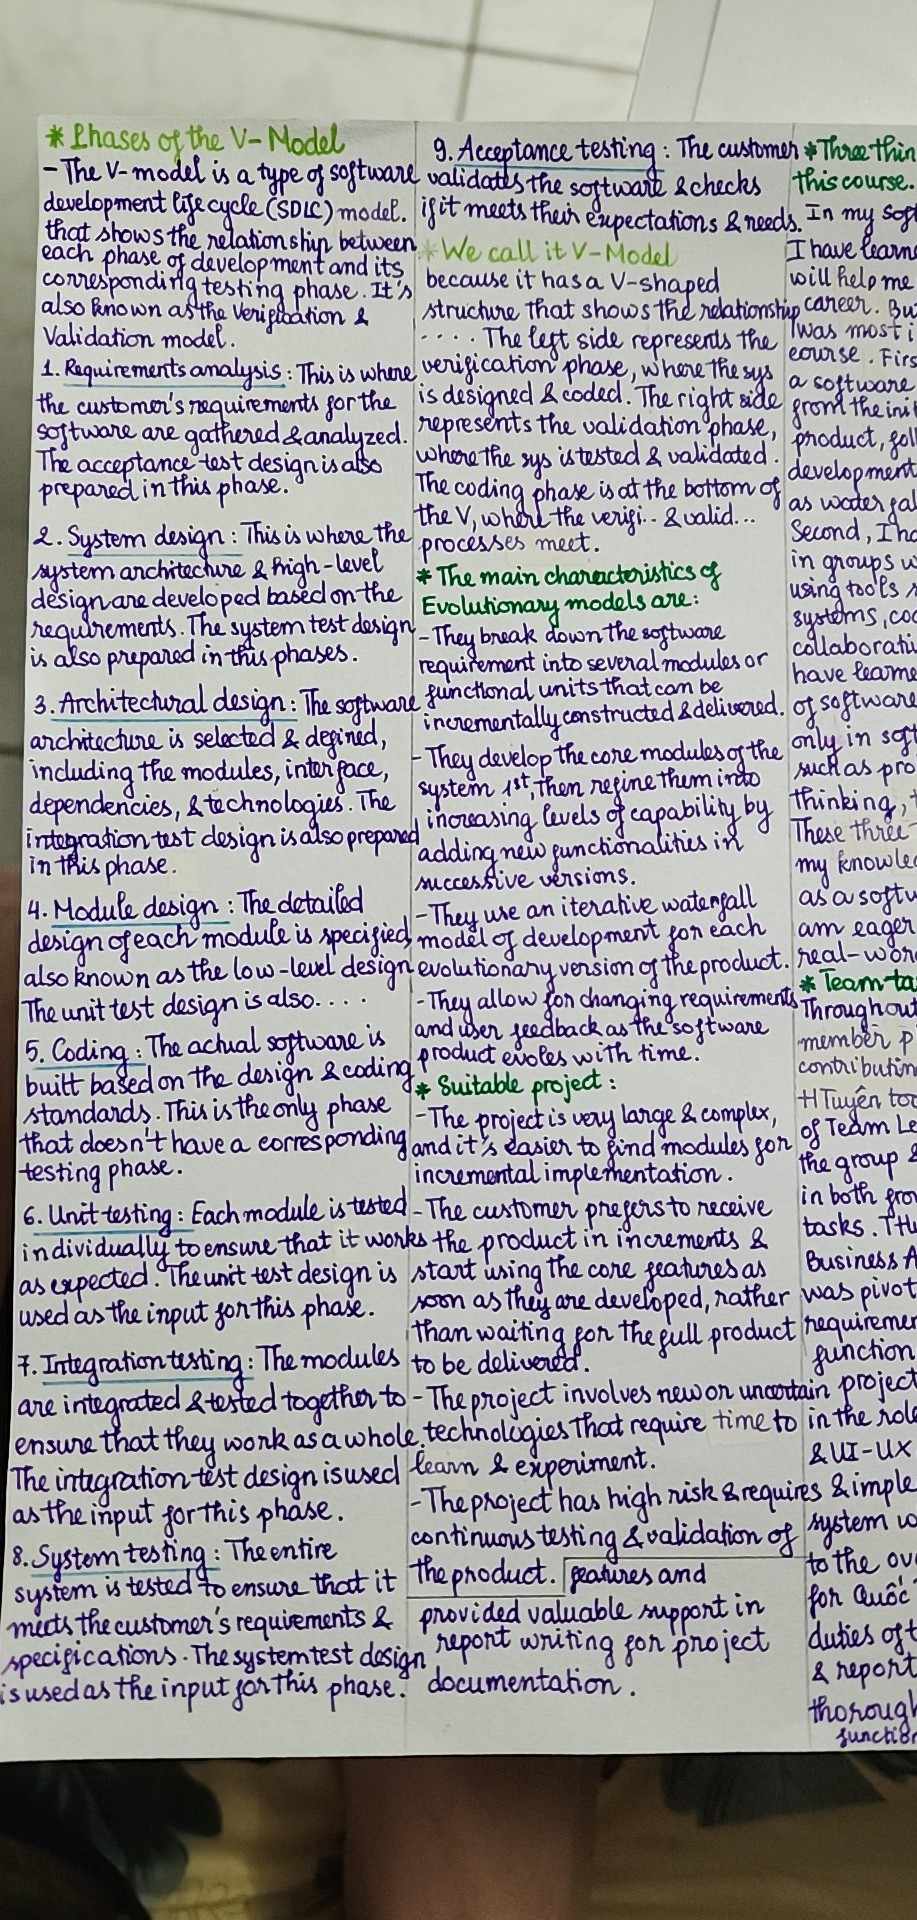 * Phases of the V-Model
- The V-model is a type of software
development life cycle (SDLC) model.
that shows the relationship between
each phase of development and its
corresponding testing phase. It's
also known as the Verification &
Validation model.
1. Requirements analysis: This is where
the customer's requirements for the
software are gathered & analyzed.
The acceptance test design is also
prepared in this phase.
2. System design: This is where the
system architecture & high-level
design are developed based on the
requirements. The system test design
is also prepared in this phases.
3. Architectural design: The software
architecture is selected & defined,
including the modules, interface,
dependencies, & technologies. The
integration test design is also prepared
in this phase.
4. Module design: The detailed
design of each module is specified,
also known as the low-level design
The unit test design is also....
5. Coding: The actual software is
built based on the design & coding
standards. This is the only phase
that doesn't have a corresponding
testing phase.
6. Unit testing: Each module is tested
individually to ensure that it works
as expected. The unit test design is
used as the input for this phase.
7. Integration testing: The modules
are integrated & tested together to
ensure that they work as a whole.
The integration test design is used
as the input for this phase.
8. System testing: The entire
system is tested to ensure that it
meets the customer's requirements &
specifications. The system test design
is used as the input for this phase.
9. Acceptance testing: The customer
validates the software & checks
if it meets their expectations & needs.
* We call it V-Model
because it has a V-shaped
structure that shows the relationship
.... The left side represents the
verification phase, where the sys
is designed & coded. The right side
represents the validation phase,
where the sys is tested & validated.
The coding phase is at the bottom of
the V, where the verifi.. & valid...
processes meet.
* The main characteristics of
Evolutionary models are:
- They break down the software
requirement into several modules or
functional units that can be
incrementally constructed & delivered.
- They develop the core modules of the
system 1st, then refine them into
increasing levels of capability by
adding new functionalities in
successive versions.
- They use an iterative waterfall
model of development for each
evolutionary version of the product.
- They allow for changing requirements
and user feedback as the software
product evoles with time.
* Suitable project:
- The project is very large & complex,
and it's easier to find modules for
incremental implementation.
- The customer prefers to receive
the product in increments &
start using the core features as
soon as they are developed, rather
than waiting for the full product
to be delivered.
- The project involves new or uncertain
technologies that require time to
learn & experiment.
- The project has high risk & requires
continuous testing & validation of
the product.
features and
provided valuable support in
report writing for project
documentation.
* Three thin
this course.
In my soft
I have learne
will help me
career. Bu
was most i
course. Firs
a software
from the init
product, foll
development
as waterfal
Second, I ha
in groups w
using tools
systems, cod
collaborati
have learne
of software
only in soft
such as pro
thinking, t
These three
my knowled
as a softw
am eager
real-wor
* Team ta
Throughout
member p
contributin
+) Tuyên too
of Team Le
the group &
in both fron
tasks. Thu
Business A
was pivot
requiremen
function
project
in the role
& UI-UX
& imple
system w
to the ov
for Quốc
duties of t
& report
thorough
function